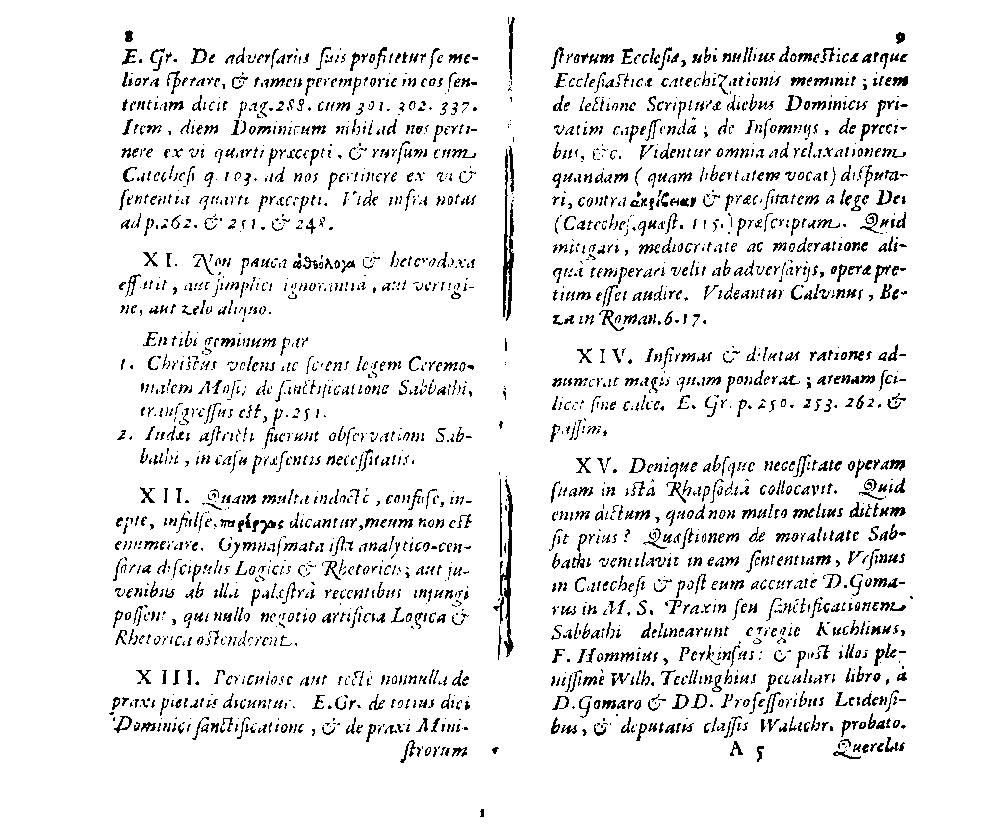 8
E. Gr. De adversariis suis profitetur se me-
liora sperare, & tamen peremptorie in eos sen-
tentiam dicit pag.288. cum 301. 302. 337.
Item, diem Dominicum nihil ad nos perti-
nere ex vi quarti præcepti, & rursum cum
Catechesi q. 103. ad nos pertinere ex vi &
sententia quarti præcepti. Vide infra notas
ad p.262. & 251. & 248.
XI. Non pauca ἀθεόλογα & heterodoxa
effutit, aut simplici ignorantia, aut vertigi-
ne, aut zelo aliquo.
En tibi geminum par
1. Christus volens ac sciens legem Ceremo-
nialem Mosis de sanctificatione Sabbathi,
transgressus est, p.251.
2. Iudæi astricti fuerunt observationi Sab-
bathi, in casu præsentis necessitatis.
XII. Quam multa indoctè, confuse, in-
epte, insulse, παρέργως dicantur, meum non est
enumerare. Gymnasmata ista analytico-cen-
soria discipulis Logicis & Rhetoricis; aut ju-
venibus ab illâ palæstrâ recentibus injungi
possent, qui nullo negotio artificia Logica &
Rhetorica ostenderent.
XIII. Periculose aut sectè nonnulla de
praxi pietatis dicuntur. E.Gr. de totius diei
Dominici sanctificatione, & de praxi Mini-
strorum
9
strorum Ecclesiæ, ubi nullius domesticæ atque
Ecclesiasticæ catechizationis meminit; item
de lectione Scripturæ diebus Dominicis pri-
vatim capessendâ; de Insomnijs, de preci-
bus, &c. Videntur omnia ad relaxationem
quandam (quam libertatem vocat) disputa-
ri, contra ἀκρίβειαν & præcisitatem a lege Dei
(Cateches.quæst. 115.) præscriptam. Quid
mitigari, mediocritate ac moderatione ali-
quâ temperari velit ab adversarijs, operæ pre-
tium esset audire. Videantur Calvinus, Be-
za in Roman.6.17.
XIV. Infirmas & dilutas rationes ad-
numerat magis quam ponderat; arenam sci-
licet sine calce. E. Gr. p. 250. 253. 262. &
passim.
XV. Denique absque necessitate operam
suam in istâ Rhapsodiâ collocavit. Quid
enim dictum, quod non multo melius dictum
sit prius? Quæstionem de moralitate Sab-
bathi ventilavit in eam sententiam, Vrsinus
in Catechesi & post eum accurate D.Goma-
rus in M. S. Praxin seu sanctificationem
Sabbathi delinearunt egregie Kuchlinus,
F. Hommius, Perkinsus: & post illos ple-
nissimè Wilh. Teellinghius peculiari libro, à
D.Gomaro & DD. Professoribus Leidensi-
bus, & deputatis classis Walachr. probato.
A 5 Querelas